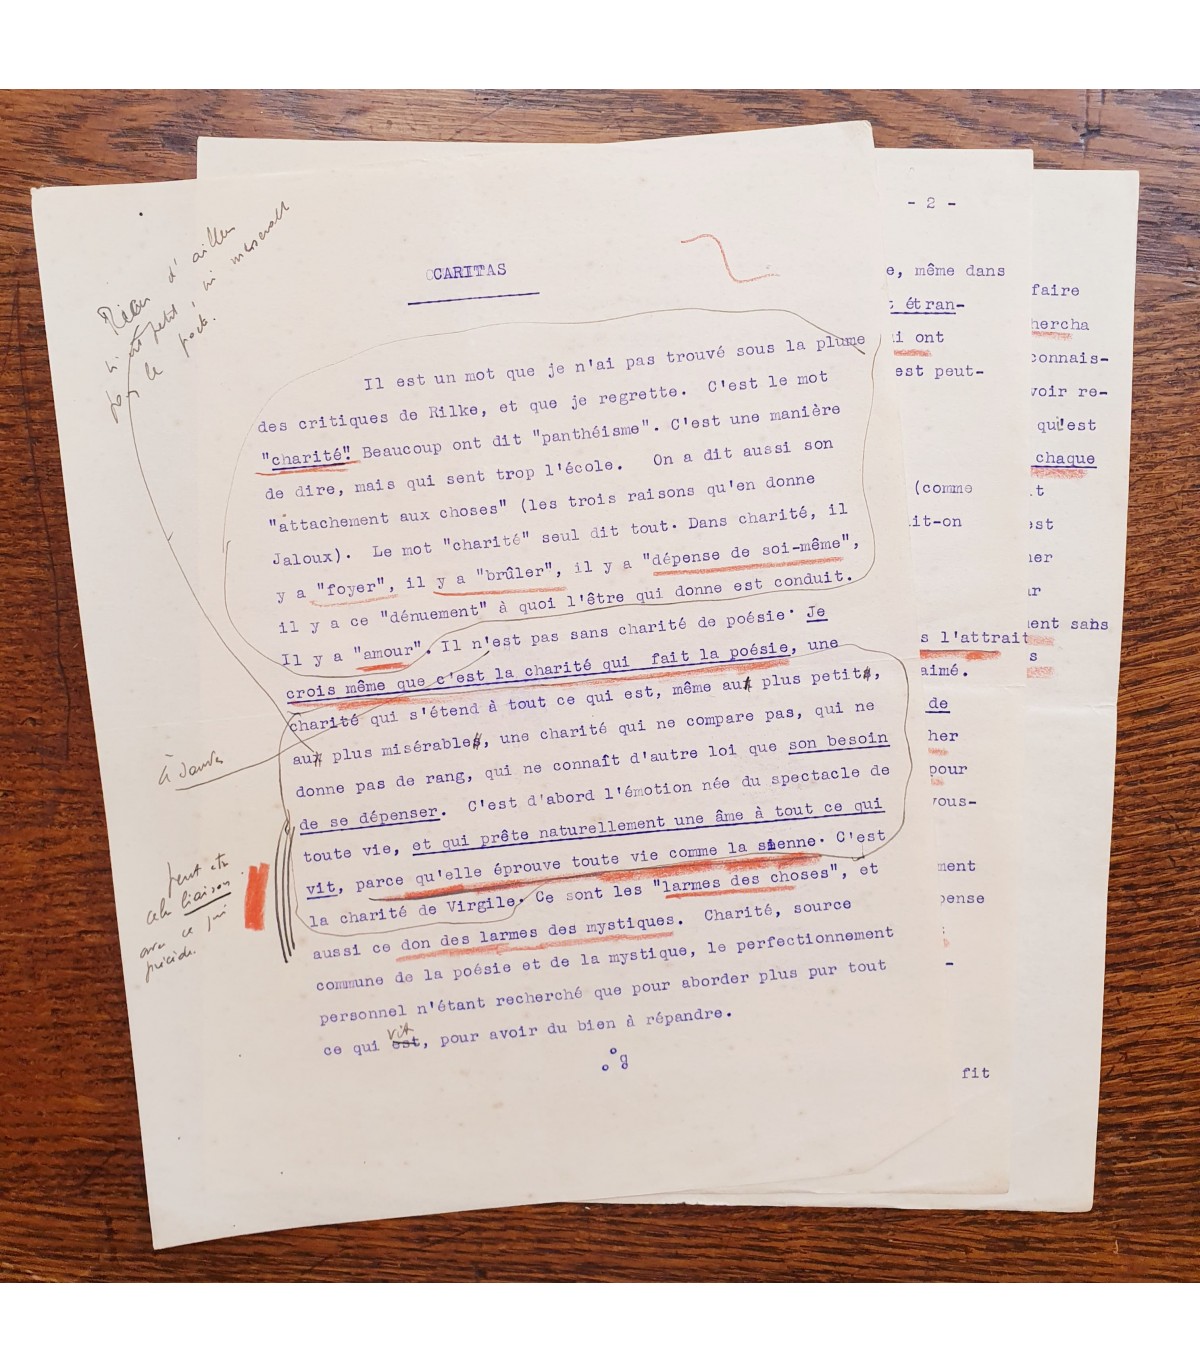 CARITAS
Il est un mot que je n'ai pas trouvé sous la plume
des critiques de Rilke, et que je regrette. C'est le mot
"charité". Beaucoup ont dit "panthéisme". C'est une manière
de dire, mais qui sent trop l'école. On a dit aussi son
"attachement aux choses" (les trois raisons qu'en donne
Jaloux). Le mot "charité" seul dit tout. Dans charité, il
y a "foyer", il y a "brûler", il y a "dépense de soi-même",
il y a ce "dénuement" à quoi l'être qui donne est conduit.
Il y a "amour". Il n'est pas sans charité de poésie. Je
crois même que c'est la charité qui fait la poésie, une
charité qui s'étend à tout ce qui est, même aux plus petits,
aux plus misérables, une charité qui ne compare pas, qui ne
donne pas de rang, qui ne connaît d'autre loi que son besoin
de se dépenser. C'est d'abord l'émotion née du spectacle de
toute vie, et qui prête naturellement une âme à tout ce qui
vit, parce qu'elle éprouve toute vie comme la sienne. C'est
la charité de Virgile. Ce sont les "larmes des choses", et
aussi ce don des larmes des mystiques. Charité, source
commune de la poésie et de la mystique, le perfectionnement
personnel n'étant recherché que pour aborder plus pur tout
vit
ce qui est, pour avoir du bien à répandre.
Rien d'ailleurs
ni petit, ni
pour le poète.
à
peut être
liaison
avec ce qui
précède.
- 2 -
e, même dans
étran-
i ont
est peut-
(comme
it-on
s l'attrait
aimé.
de
her
pour
vous-
ment
pense
-
fit
faire
hercha
connais-
voir re-
qu'est
chaque
t
est
her
ar
ment sans
s